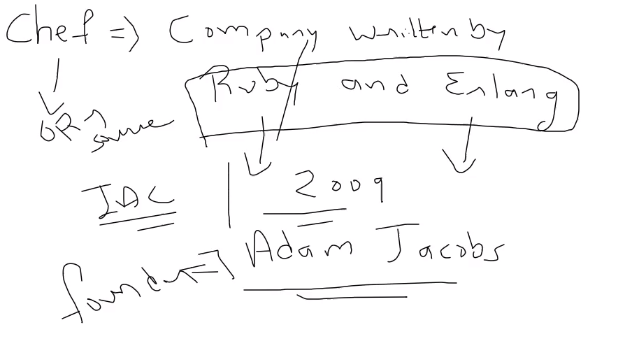 Chef => Company written by
Ruby and Erlang
source
IAC | 2009
founder => Adam Jacobs